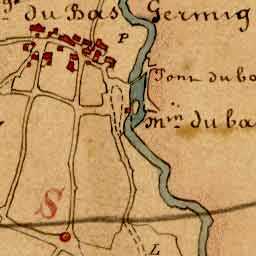 du Bas Germig
P
Pont du ba
m.in du ba
S
L